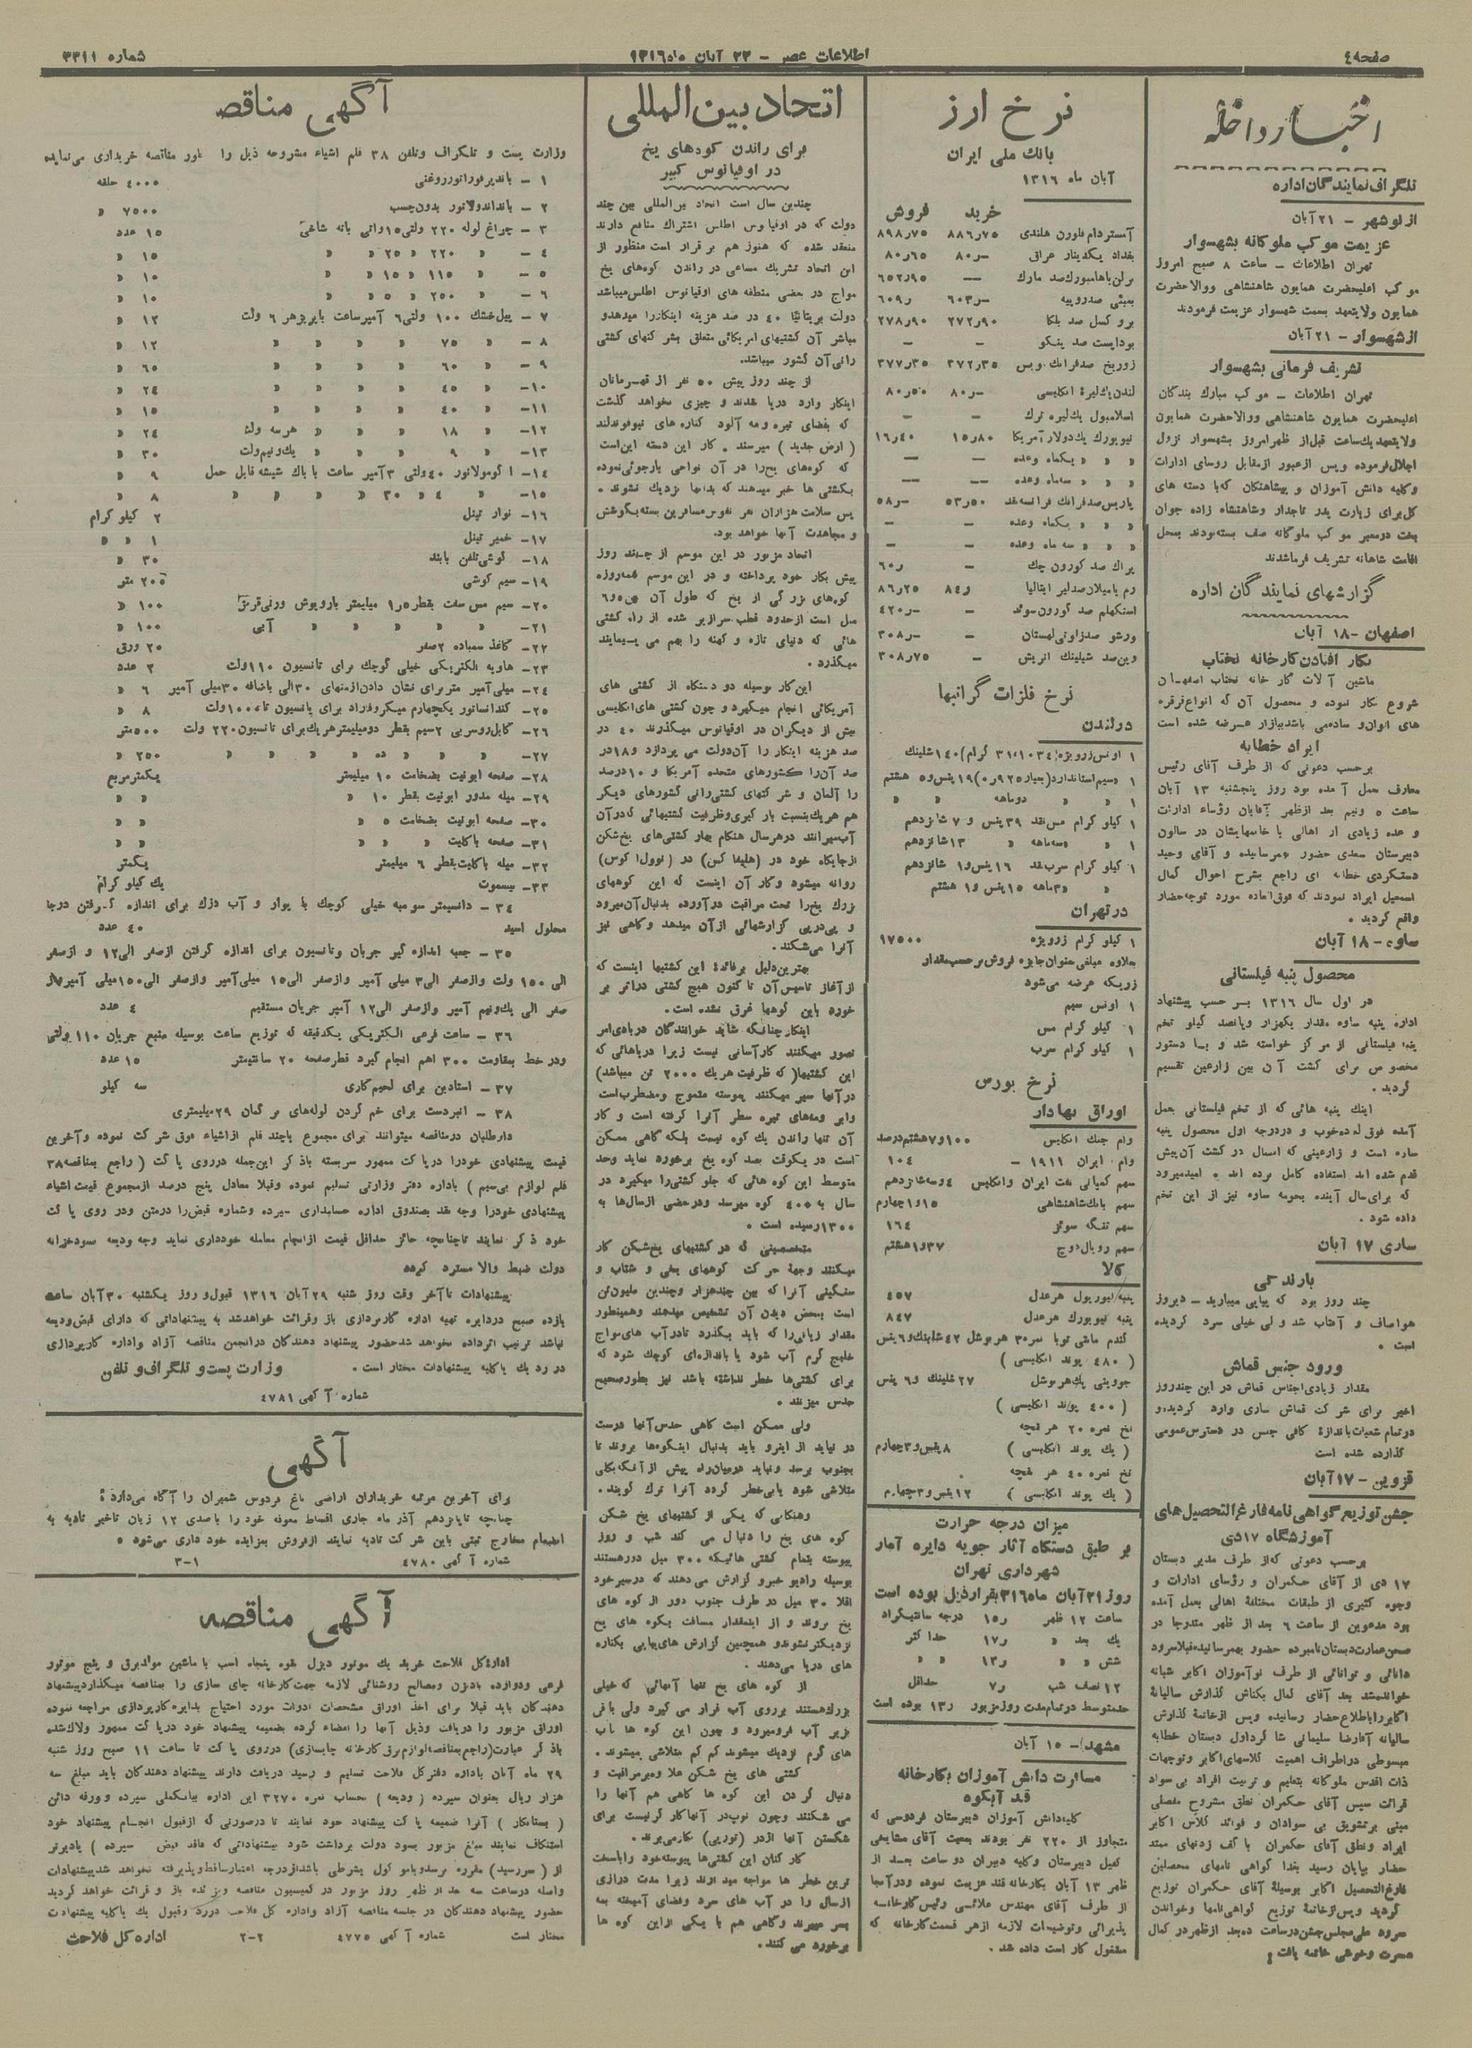 صفحه٤
اطلاعات عصر – ۲۲ آبان ماه ۱۳۱٦
شماره ۳۳۱۱
اخبار داخله
تلگراف نمایندگان اداره
از نوشهر – ۲۱ آبان
عزیمت موکب ملوکانه بشهسوار
تهران اطلاعات – ساعت ۸ صبح امروز
موکب اعلیحضرت همایون شاهنشاهی ووالاحضرت
همایون ولایتعهد بسمت شهسوار عزیمت فرمودند
از شهسوار – ۲۱ آبان
تشریف فرمائی بشهسوار
تهران اطلاعات – موکب مبارک بندگان
اعلیحضرت همایون شاهنشاهی ووالاحضرت همایون
ولایتعهد یک ساعت قبل از ظهر امروز بشهسوار نزول
اجلال فرموده وپس از عبور از مقابل روسای ادارات
وکلیه دانش آموزان و پیشاهنگان که با دسته های
گل برای زیارت پدر تاجدار وشاهنشاه زاده جوان
بخت درمعبر موکب ملوکانه صف بسته بودند بمحل
اقامت شاهانه تشریف فرما شدند
گزارشهای نمایندگان اداره
اصفهان – ۱۸ آبان
بکار افتادن کارخانه نختاب
ماشین آلات کارخانه نختاب اصفهان
شروع بکار نموده و محصول آن که انواع قرقره
های الوان وساده می باشد ببازار عرضه شده است
ایراد خطابه
برحسب دعوتی که از طرف آقای رئیس
معارف بعمل آمده بود روز پنجشنبه ۱۳ آبان
ساعت ٥ ونیم بعد از ظهر آقایان رؤساء ادارات
و عده زیادی از اهالی با خانمهایشان در سالون
دبیرستان سعدی حضور بهمرسانیده و آقای وحید
دستگردی خطابه ای راجع بشرح احوال کمال
اسمعیل ایراد نمودند که فوق العاده مورد توجه حضار
واقع گردید .
ساوه – ۱۸ آبان
محصول پنبه فیلستانی
در اول سال ۱۳۱٦ بر حسب پیشنهاد
اداره پنبه ساوه مقدار یکهزار و پانصد کیلو تخم
پنبه فیلستانی از مرکز خواسته شد و با دستور
مخصوص برای کشت آن بین زارعین تقسیم
گردید .
اینک پنبه هائی که از تخم فیلستانی بعمل
آمده فوق العاده خوب و دردرجه اول محصول پنبه
ساوه است و زارعینی که امسال در کشت آن پیش
قدم شده اند استفاده کامل برده اند . امید میرود
که برای سال آینده بحومه ساوه نیز از این تخم
داده شود .
ساری ۱۷ آبان
بارندگی
چند روز بود که پیاپی میبارید – دیروز
هوا صاف و آفتاب شد ولی خیلی سرد گردیده
است .
ورود جنس قماش
مقدار زیادی اجناس قماش در این چند روز
اخیر برای شرکت قماش ساری وارد گردیده و
در تمام شعبات باندازهٔ کافی جنس در دسترس عمومی
گذارده شده است
قزوین – ۱۷ آبان
جشن توزیع گواهی نامه فارغ التحصیل های
آموزشگاه ۱۷ دی
برحسب دعوتی که از طرف مدیر دبستان
۱۷ دی از آقای حکمران و رؤسای ادارات و
وجوه کثیری از طبقات مختلفهٔ اهالی بعمل آمده
بود مدعوین از ساعت ٦ بعد از ظهر متدرجا در
صحن عمارت دبستان نامبرده حضور بهمرسانیده قبلا سرود
دانائی و توانائی از طرف نوآموزان اکابر شبانه
خوانده شد بعد آقای کمال بکتاش گذارش سالیانهٔ
اکابر را باطلاع حضار رسانیده وپس از خاتمهٔ گذارش
سالیانه آقا رضا سلیمانی شاگرد اول دبستان خطابه
مبسوطی در اطراف اهمیت کلاسهای اکابر و توجهات
ذات اقدس ملوکانه بتعلیم و تربیت افراد بی سواد
قرائت سپس آقای حکمران نطق مشروح مفصلی
مبنی بر تشویق بی سوادان و فوائد کلاس اکابر
ایراد ونطق آقای حکمران با کف زدنهای ممتد
حضار بپایان رسید بعدا گواهی نامهای محصلین
فارغ التحصیل اکابر بوسیلهٔ آقای حکمران توزیع
گردید وپس از خاتمهٔ توزیع گواهی نامها و خواندن
سرود ملی مجلس جشن در ساعت ده بعد از ظهر در کمال
مسرت وخوشی خاتمه یافت
نرخ ارز
بانک ملی ایران
آبان ماه ۱۳۱٦
خرید فروش
آمستردام فلورن هلندی ۸۸٦ر۷٥ ۸۹۸ر۷٥
بغداد یکدینار عراقی –ر۸۰ ۸۰ر٦٥
برلن یاهامبورک صد مارک –– ٦٥۲ر۹٥
بمبئی صد روپیه –ر٦۰۳ ر٦۰۹
بروکسل صد بلکا ۲۷۲ر۹۰ ۲۷۸ر۹۰
بوداپست صد پنکو – –
زوریخ صد فرانک سویس ۳۷۲ر۳٥ ۳۷۷ر۳٥
لندن یک لیرهٔ انگلیسی –ر۸۰ ۸۰ر٥۰
اسلامبول یک لیره ترک – –
نیویورک یک دولار آمریکا ۱٥ر۸۰ ۱٦ر٤۰
» » یکماه وعده – –
» » سه ماه وعده –– ––
پاریس صد فرانک فرانسه نقد ٥۳ر٥۰ –ر٥۸
» » » یکماه وعده – –
» » » سه ماه وعده – –
پراک صد کورون چک – ر٦۰
رم یا میلان صد لیر ایتالیا ر۸٤ ۸٦ر۲٥
استکهلم صد کورون سوئد – –ر٤۲۰
ورشو صد زلوتی لهستان – –ر۳۰۸
وین صد شیلینک اتریش – ۳۰۸ر۷٥
نرخ فلزات گرانبها
در لندن
۱ اونس زر ویژه( ۳۱،۱۰۳٤ گرام)۱٤۰ شلینک
۱ » سیم استاندارد(بعیار ۹۲٥ر۰)۱۹ پنس و٥ هشتم
۱ » » دوماهه » »
۱ کیلو گرام مس نقد ۳۹ پنس و ۷ شانزدهم
۱ » » سه ماهه » ۱۳ شانزدهم
۱ کیلو گرام سرب نقد ۱٦ پنس و۱ شانزدهم
» » ۳ماهه ۱٥ پنس و۱ هشتم
در تهران
۱ کیلو گرام زر ویژه ۱۷٥۰۰
بعلاوه مبلغی بعنوان جایزه فروش برحسب مقدار
زریکه عرضه می شود
۱ اونس سیم
۱ کیلو گرام مس
۱ کیلو گرام سرب
نرخ بورس
اوراق بهادار
وام جنک انگلیس ۱۰۰و۷ هشتم درصد
وام ایران ۱۹۱۱ – ۱۰٤
سهم کمپانی نفت ایران وانگلیس ٤وسه شانزدهم
سهم بانک شاهنشاهی ۱٥و۱ چهارم
سهم تنگه سوئز ۱٦٤
سهم رویال دوچ ۳۷و۱ هشتم
کالا
پنبه لیورپول هرعدل ٤٥۷
پنبه نیویورک هرعدل ۸٤۷
گندم مانی توبا نمره ۳ هر بوشل ٤۲ شلینک و٦ پنس
( ٤۸۰ پوند انگلیسی )
جو وینی پک هر بوشل ۲۷ شلینک و٦ پنس
( ٤۰۰ پوند انگلیسی )
نخ نمره ۲۰ هر بقچه
( یک پوند انگلیسی ) ۸ پنس و۳ چهارم
نخ نمره ٤۰ هر بقچه
( یک پوند انگلیسی ) ۱۲ پنس و۳ چهارم
میزان درجه حرارت
بر طبق دستگاه آثار جویه دایره آمار
شهرداری تهران
روز ۲۱ آبان ماه ۳۱٦ بقرار ذیل بوده است
ساعت ۱۲ ظهر ر۱٥ درجه سانتیگراد
یک بعد » ر۱۷ حداکثر
شش » » ر۱۳ » »
۱۲ نصف شب ر۷ حداقل
حد متوسط در تمام مدت روز مزبور ر۱۳ بوده است
مشهد – ۱٥ آبان
مسافرت دانش آموزان بکارخانه
قند آبکوه
کلیه دانش آموزان دبیرستان فردوسی که
متجاوز از ۲۲۰ نفر بودند بمعیت آقای مشایخی
کفیل دبیرستان وکلیه دبیران دو ساعت بعد از
ظهر ۱۳ آبان بکارخانه قند عزیمت نموده ودرآنجا
از طرف آقای مهندس علائسی رئیس کارخانه
پذیرائی وتوضیحات لازمه از هر قسمت کارخانه که
مشغول کار است داده شد .
اتحاد بین المللی
برای راندن کوه های یخ
در اوقیانوس کبیر
چندین سال است اتحاد بین المللی بین چند
دولت که در اوقیانوس اطلس اشتراک منافع دارند
منعقد شده که هنوز هم برقرار است منظور از
این اتحاد تشریک مساعی در راندن کوه های یخ
مواج در بعضی منطقه های اوقیانوس اطلس میباشد
دولت بریتانیا ٤۰ در صد هزینه اینکار را میدهد و
مباشر آن کشتیهای امریکائی متعلق بشرکتهای کشتی
رانی آن کشور میباشد.
از چند روز پیش ٥۰ نفر از قهرمانان
اینکار وارد دریا شدند و چیزی نخواهد گذشت
که بفضای تیره ومه آلود کناره های نیوفوندلند
( ارض جدید ) میرسند . کار این دسته این است
که کوه های یخ را در آن نواحی بازجوئی نموده
بکشتی ها خبر میدهند که بدانها نزدیک نشوند .
پس سلامت هزاران نفر نفوس مسافرین بسته بکوشش
و مجاهدت آنها خواهد بود.
اتحاد مزبور در این موسم از چند روز
پیش بکار خود پرداخته و در این موسم همه روزه
کوه های بزرگی از یخ که طول آن ٥و٦
میل است از حدود قطب سرازیر شده از راه کشتی
هائی که دنیای تازه و کهنه را بهم می پیمایند
میگذرد .
این کار بوسیله دو دستگاه از کشتی های
آمریکائی انجام میگیرد و چون کشتی های انگلیسی
بیش از دیگران در اوقیانوس میگذرند ٤۰ در
صد هزینه اینکار را آن دولت می پردازد و۱۸ در
صد آن را کشورهای متحده آمریکا و ۱۰ درصد
را آلمان و شرکتهای کشتی رانی کشورهای دیگر
هم هر یک بنسبت بارگیری وظرفیت کشتیهائی که در آن
آب میرانند در هر سال هنگام بهار کشتی های یخ شکن
از جایگاه خود در (هلیفاکس) در (نوول اکوس)
روانه میشود وکار آن اینست که این کوههای
بزرک یخ را تحت مراقبت در آورده بدنبال آن میرود
و پی در پی گزارشهائی از آن میدهد وگاهی نیز
آنرا می شکند .
بهترین دلیل بر فائدهٔ این کشتیها اینست که
از آغاز تاسیس آن تا کنون هیچ کشتی در اثر بر
خورد باین کوهها غرق نشده است .
اینکار چنانکه شاید خوانندگان در بادی امر
تصور میکنند کار آسانی نیست زیرا دریاهائی که
این کشتیها( که ظرفیت هر یک ۲۰۰۰ تن میباشد)
در آنها سیر میکنند پیوسته متموج ومضطرب است
وابر ومه های تیره سطر آنرا گرفته است و کار
آن تنها راندن یک کوه نیست بلکه گاهی ممکن
است در یکوقت بصد کوه یخ برخورد نماید وحد
متوسط این کوه هائی که جلو کشتی را میگیرد در
سال به ٤۰۰ کوه میرسد ودر بعضی از سال ها به
۱۳۰۰ رسیده است .
متخصصینی که در کشتیهای یخ شکن کار
میکنند وجههٔ حرکت کوههای یخی و شتاب و
سنگینی آنرا که بین چند هزار وچندین ملیون تن
است بمحض دیدن آن تشخیص میدهند وهمینطور
مقدار زمانی را که باید بگذرد تا در آب های مواج
خلیج گرم آب شود یا باندازه ای کوچک شود که
برای کشتی ها خطر نداشته باشد نیز بطور صحیح
حدس میزنند .
ولی ممکن است گاهی حدس آنها درست
در نیاید از اینرو باید بدنبال اینکوه ها بروند تا
بجنوب برسد ونباید در میان راه پیش از آنکه بکلی
متلاشی شود یا بی خطر گردد آنرا ترک گویند .
وهنگامی که یکی از کشتیهای یخ شکن
کوه های یخ را دنبال می کند شب و روز
پیوسته بتمام کشتی هائیکه ۳۰۰ میل دور هستند
بوسیله رادیو خبر و گزارش می دهند که در سیر خود
اقلا ۳۰ میل در طرف جنوب دور از کوه های
یخ بروند و از اینمقدار مسافت بکوه های یخ
نزدیکتر نشوند و همچنین گزارش های پیاپی بکناره
های دریا می دهند .
از کوه های یخ تنها آنهائی که خیلی
بزرک هستند بر روی آب قرار می گیرد ولی باقی
بزیر آب فرو میرود و چون این کوه ها بآب
های گرم نزدیک میشوند کم کم متلاشی میشوند .
کشتی های یخ شکن علاوه بر مراقبت و
دنبال کردن این کوه ها گاهی هم آنها را
می شکنند وچون توپ در آنها کارگر نیست برای
شکستن آنها از در (تورپی) بکار می برند .
کارکنان این کشتی ها پیوسته خود را با سخت
ترین خطر ها مواجه میدارند زیرا مدت درازی
از سال را در آب های سرد وفضای آمیخته بمه
بسر میبرند وگاهی هم با یکی از این کوه ها
برخورد می کنند .
آگهی مناقصه
وزارت پست و تلگراف وتلفن ۳۸ قلم اشیاء مشروحه ذیل را بطور مناقصه خریداری می نماید
۱ – باندپرفوراتورروغنی ٤۰۰۰ حلقه
۲ – بانداندولاتور بدون چسب ۷٥۰۰ »
۳ – چراغ لوله ۲۲۰ ولتی ۱٥ واتی بانه شاخی ۱٥ عدد
٤ – » » ۲۲۰ » ۲٥ » » ۱٥ »
٥ – » » ۱۱٥ » ۱٥ » » ۱۰ »
٦ – » » ۲٥۰ » ٥ » » ۱۰ »
۷ – پیل خشک ۱۰۰ ولتی ٦ آمپرساعت باپریزهر ٦ ولت ۱۲ »
۸ – » » ۷٥ » » » » » ۱۲ »
۹ – » » ٦۰ » » » » » ٦٥ »
۱۰– » » ٤٥ » » » » » ۲٤ »
۱۱– » » ٤۰ » » » » » ۱٥ »
۱۲– » » ۱۸ » » » » هر سه ولت ۲٤ »
۱۳– » » ۹ » » » » یک ونیم ولت ۳۰ »
۱٤– اکومولاتور ٤۰ ولتی ۳ آمپر ساعت با باک شیشه قابل حمل ۹ »
۱٥– » ٤ » ۳۰ » » » » ۸ »
۱٦– نوار تینل ۲ کیلو گرام
۱۷– خمیر تینل ۱ » »
۱۸– گوشی تلفن بابند ۳۰ »
۱۹– سیم گوشی ۲۰۰ متر
۲۰– سیم مس سفت بقطر ۱ر٥ میلیمتر باروپوش ورنی قرمز ۱۰۰ »
۲۱– » » » » » آبی ۱۰۰ »
۲۲– کاغذ سمباده ۲ صفر ۲٥ ورق
۲۳– هاویه الکتریکی خیلی کوچک برای تانسیون ۱۱۰ ولت ۲ عدد
۲٤– میلی آمپر متر برای نشان دادن از منهای ۳۰ الی باضافه ۳۰ میلی آمپر ٦ »
۲٥– کندانساتور یکچهارم میکروفاراد برای پانسیون تا ٤۰۰۰ ولت ۸ »
۲٦– کابل روسربی ۲ سیم بقطر دو میلیمتر هر یک برای تانسیون ۲۲۰ ولت ٥۰۰ متر
۲۷– » » » ده » » » ۲٥۰ »
۲۸– صفحه ابونیت بضخامت ۱۰ میلیمتر یکمتر مربع
۲۹– میله مدور ابونیت بقطر ۱۰ » » »
۳۰– صفحه ابونیت بضخامت ٥ » » »
۳۱– صفحه باکلیت » » » »
۳۲– میله باکلیت بقطر ٦ میلیمتر یکمتر
۳۳– بیسموت یک کیلو گرام
۳٤ – دانسیمتر سومبه خیلی کوچک با پوار و آب دزک برای اندازه گرفتن درجه
محلول اسید ٤۰ عدد
۳٥ – جعبه اندازه گیر جریان وتانسیون برای اندازه گرفتن از صفر الی ۱۲ و از صفر
الی ۱٥۰ ولت واز صفر الی ۳ میلی آمپر واز صفر الی ۱٥ میلی آمپر واز صفر الی ۱٥۰ میلی آمپر واز
صفر الی یک ونیم آمپر واز صفر الی ۱۲ آمپر جریان مستقیم ٤ عدد
۳٦ – ساعت فرعی الکتریکی یکدقیقه که توزیع ساعت بوسیله منبع جریان ۱۱۰ ولتی
ودر خط بمقاومت ۳۰۰ اهم انجام گیرد قطر صفحه ۲۰ سانتیمتر ۱٥ عدد
۳۷ – استادین برای لحیم کاری سه کیلو
۳۸ – انبردست برای خم کردن لوله های برگمان ۲۹ میلیمتری
داوطلبان در مناقصه میتوانند برای مجموع یا چند قلم از اشیاء فوق شرکت نموده و آخرین
قیمت پیشنهادی خود را در پاکت ممهور سربسته با ذکر این جمله در روی پاکت ( راجع بمناقصه ۳۸
قلم لوازم بی سیم ) باداره دفتر وزارتی تسلیم نموده وقبلا معادل پنج درصد از مجموع قیمت اشیاء
پیشنهادی خود را وجه نقد بصندوق اداره حسابداری سپرده وشماره قبض را در متن ودر روی پاکت
خود ذکر نمایند تا چنانچه حائز حداقل قیمت از انجام معامله خودداری نماید وجه ودیعه بسود خزانه
دولت ضبط والا مسترد گردد
پیشنهادات تا آخر وقت روز شنبه ۲۹ آبان ۱۳۱٦ قبول و روز یکشنبه ۳۰ آبان ساعت
یازده صبح در دایره تهیه اداره کارپردازی باز وقرائت خواهد شد به پیشنهاداتی که دارای قبض ودیعه
نباشد ترتیب اثر داده نخواهد شد حضور پیشنهاد دهندگان در انجمن مناقصه آزاد واداره کارپردازی
در رد یک یا کلیه پیشنهادات مختار است .
وزارت پست و تلگراف و تلفن
شماره آگهی ٤۷۸۱
آگهی
برای آخرین مرتبه خریداران اراضی باغ فردوس شمیران را آگاه می دارد :
چنانچه تا پانزدهم آذر ماه جاری اقساط معوقه خود را با صدی ۱۲ زیان تاخیر تادیه به
انضمام مخارج ثبتی باین شرکت تادیه ننمایند از فروش بمزایده خود داری می شود
شماره آگهی ٤۷۸۰
۳–۱
آگهی مناقصه
اداره کل فلاحت خرید یک موتور دیزل بقوه پنجاه اسب با ماشین مولد برق و پنج موتور
فرعی ودوازده بادزن ومصالح روشنائی لازمه جهت کارخانه چای سازی را بمناقصه میگذارد پیشنهاد
دهندگان باید قبلا برای اخذ اوراق مشخصات ادوات مورد احتیاج بدایره کارپردازی مراجعه نموده
اوراق مزبور را دریافت وذیل آنها را امضاء کرده بضمیمه پیشنهاد خود در پاکت ممهور ولاک شده
باذکر عبارت(راجع بمناقصه لوازم برق کارخانه چایسازی) در روی پاکت تا ساعت ۱۱ صبح روز شنبه
۲۹ ماه آبان باداره دفتر کل فلاحت تسلیم و رسید دریافت دارند پیشنهاد دهندگان باید مبلغ سه
هزار ریال بعنوان سپرده ( ودیعه ) بحساب نمره ۳۲۷۰ این اداره ببانک ملی سپرده و ورقه دائن
( بستانکار ) آنرا ضمیمه پاکت پیشنهاد خود نمایند تا در صورتی که از قبول انجام پیشنهاد خود
استنکاف نمایند مبلغ مزبور بسود دولت برداشت شود پیشنهاداتی که فاقد قبض سپرده ) یا دیرتر
از ( سررسید) مقرره برسد و یا موکول بشرطی باشد از درجه اعتبار ساقط و پذیرفته نخواهد شد پیشنهادات
واصله در ساعت سه بعد از ظهر روز مزبور در کمیسیون مناقصه وبژنده باز و قرائت خواهد گردید
حضور پیشنهاد دهندگان در جلسه مناقصه آزاد واداره کل فلاحت در رد وقبول یک یا کلیه پیشنهادات
مختار است شماره آگهی ٤۷۷٥ ۲–۲ اداره کل فلاحت